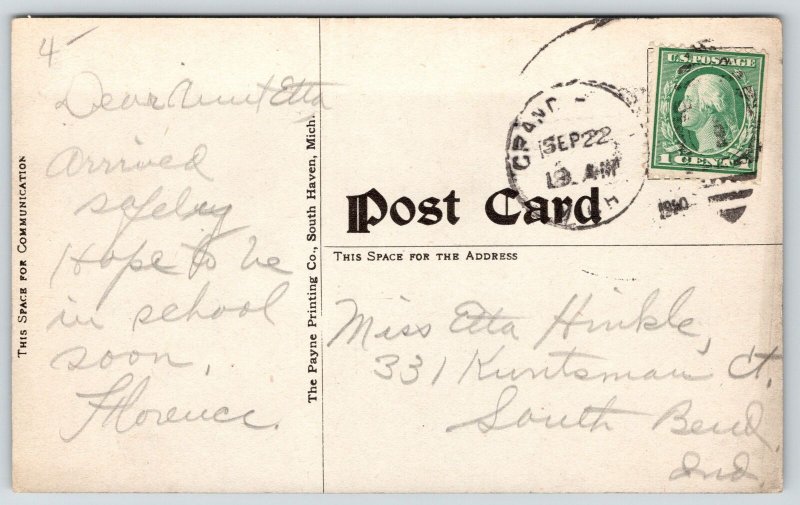 4
Dear Aunt Etta
Arrived
safely
Hope to be
in school
soon,
Florence.
THIS SPACE FOR COMMUNICATION
The Payne Printing Co., South Haven, Mich.
GRAND
SEP 22
AM
U.S. POSTAGE
1 CENT 1
Post Card
THIS SPACE FOR THE ADDRESS
Miss Etta Hinkle,
331 Kuntsman Ct.
South Bend,
Ind.